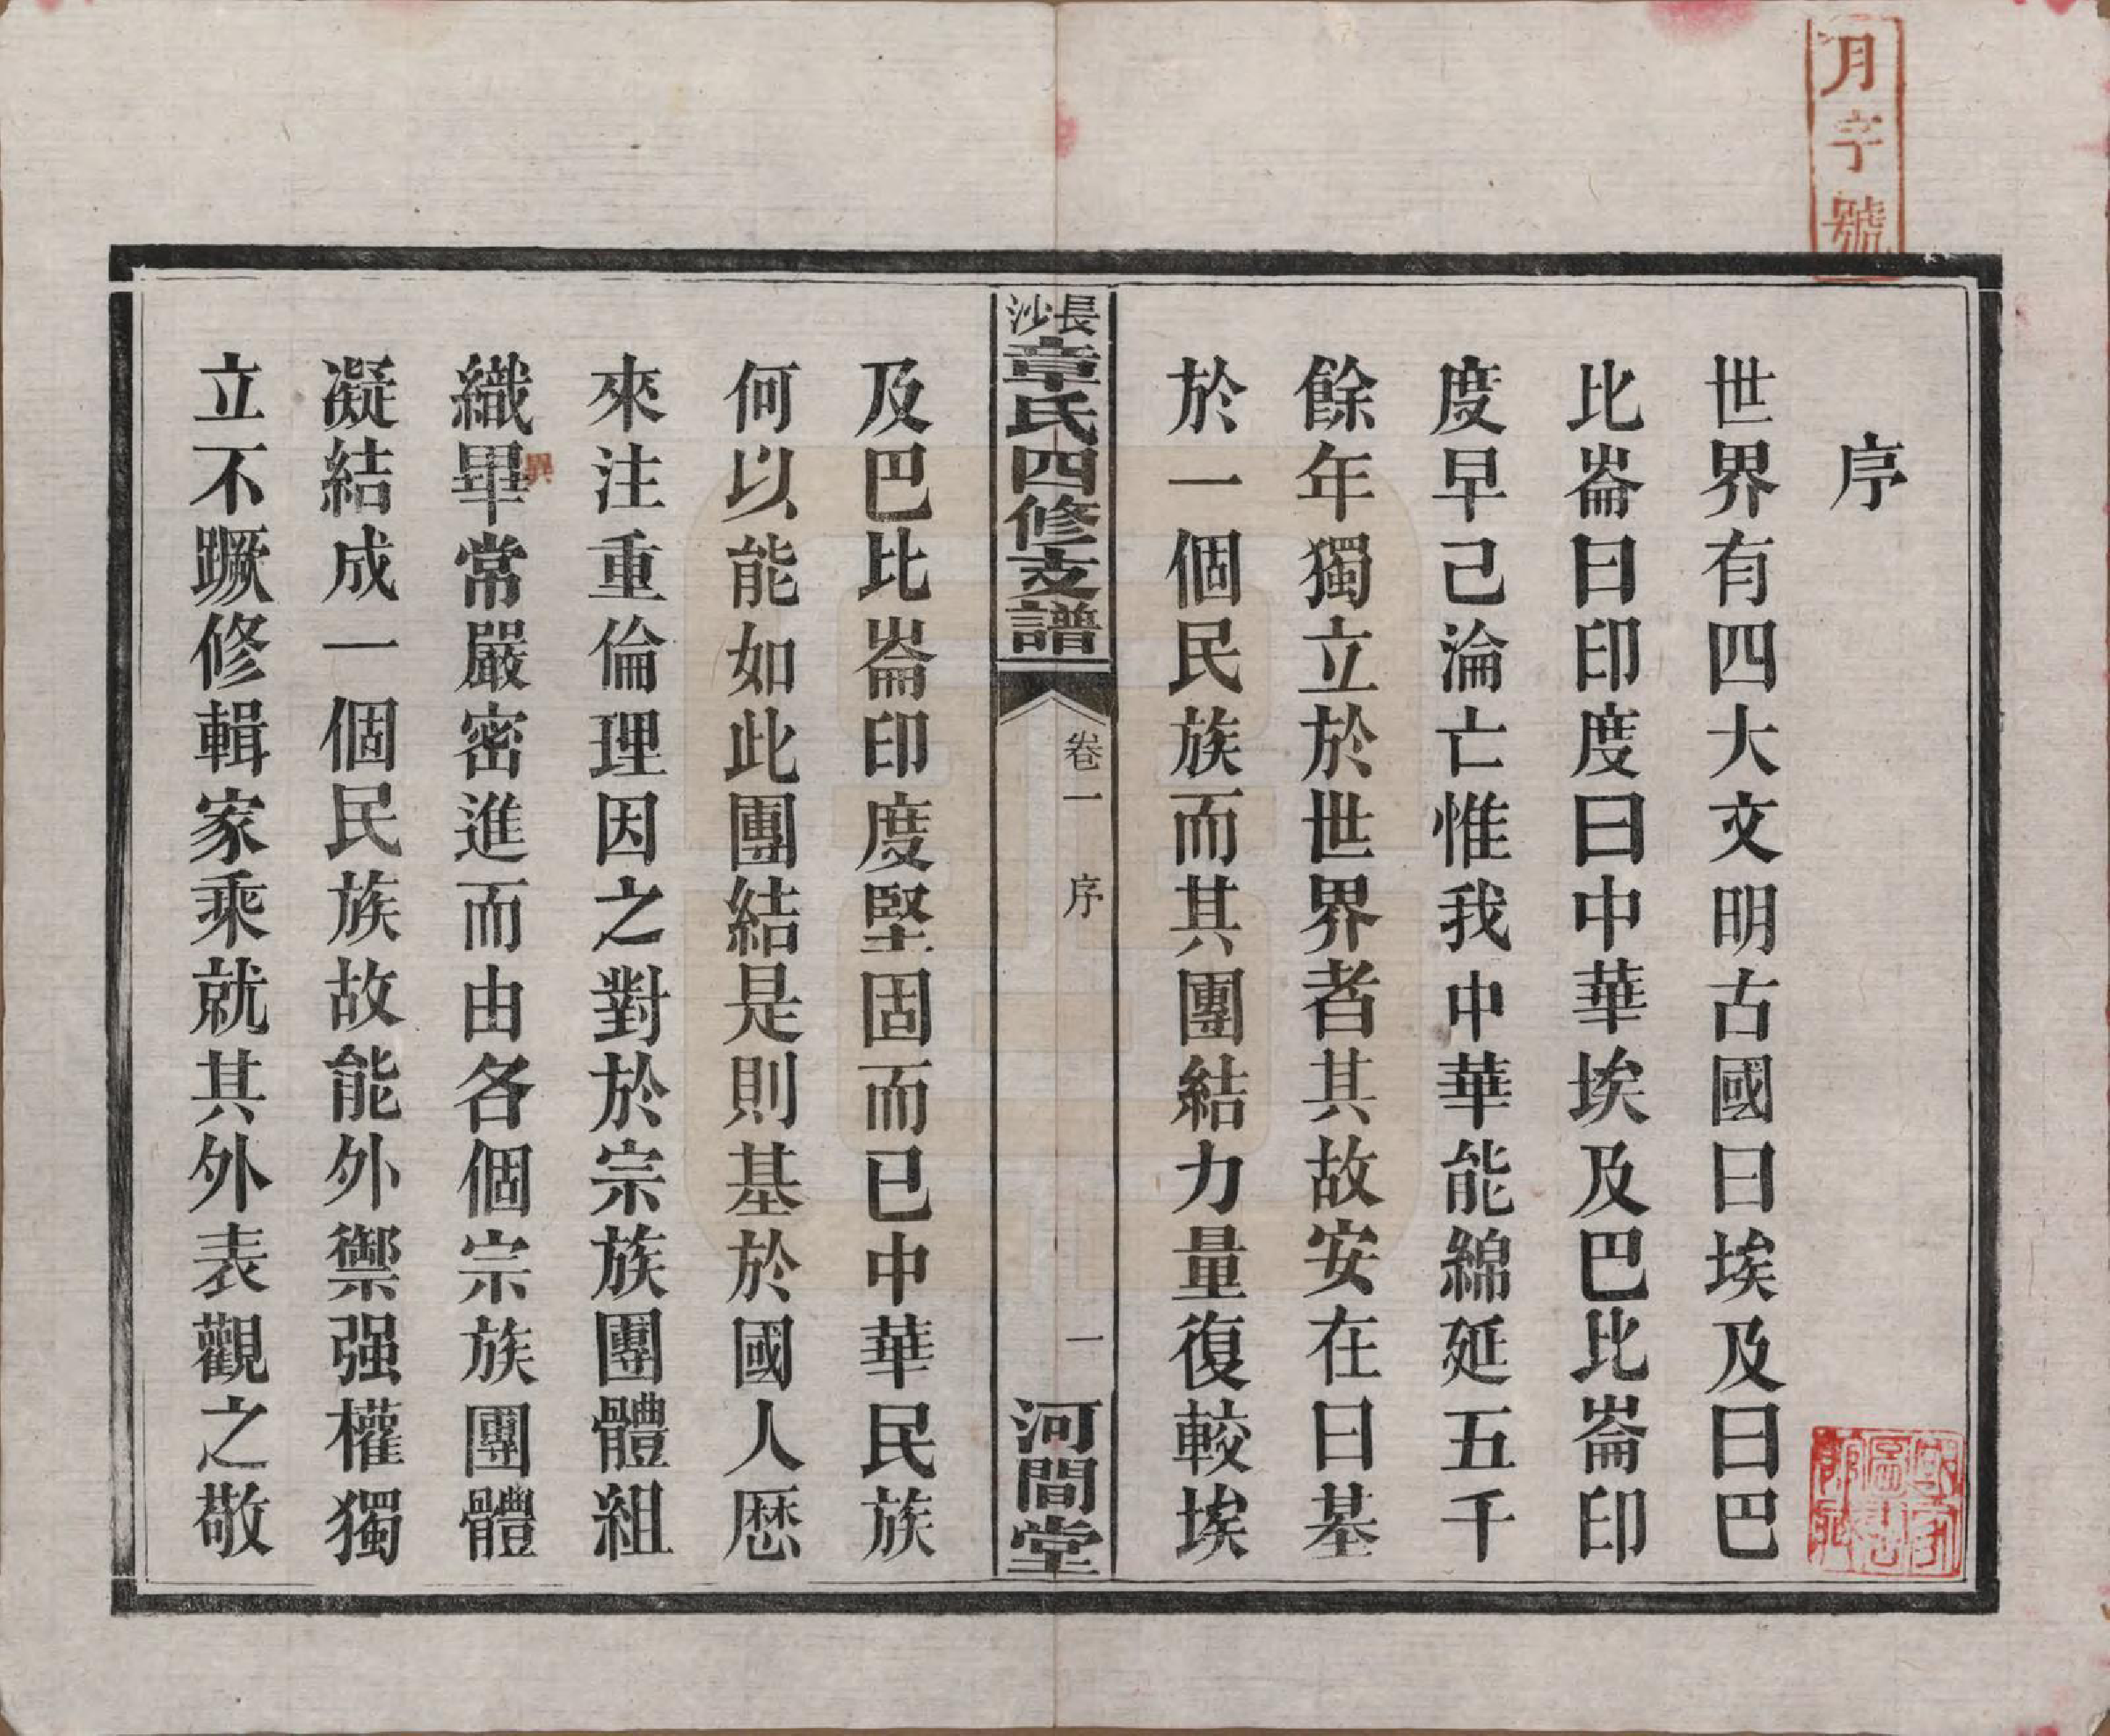 月字號
序
世界有四大文明古國曰埃及曰巴
比崙曰印度曰中華埃及巴比崙印
度早己淪亡惟我中華能綿延五千
餘年獨立於世界者其故安在曰基
於一個民族而其團結力量復較埃
長沙章氏四修支譜
卷一 序
一
河間堂
及巴比崙印度堅固而已中華民族
何以能如此團結是則基於國人歷
來注重倫理因之對於宗族團體組
織畢常嚴密進而由各個宗族團體
異
凝結成一個民族故能外禦强權獨
立不蹶修輯家乘就其外表觀之敬